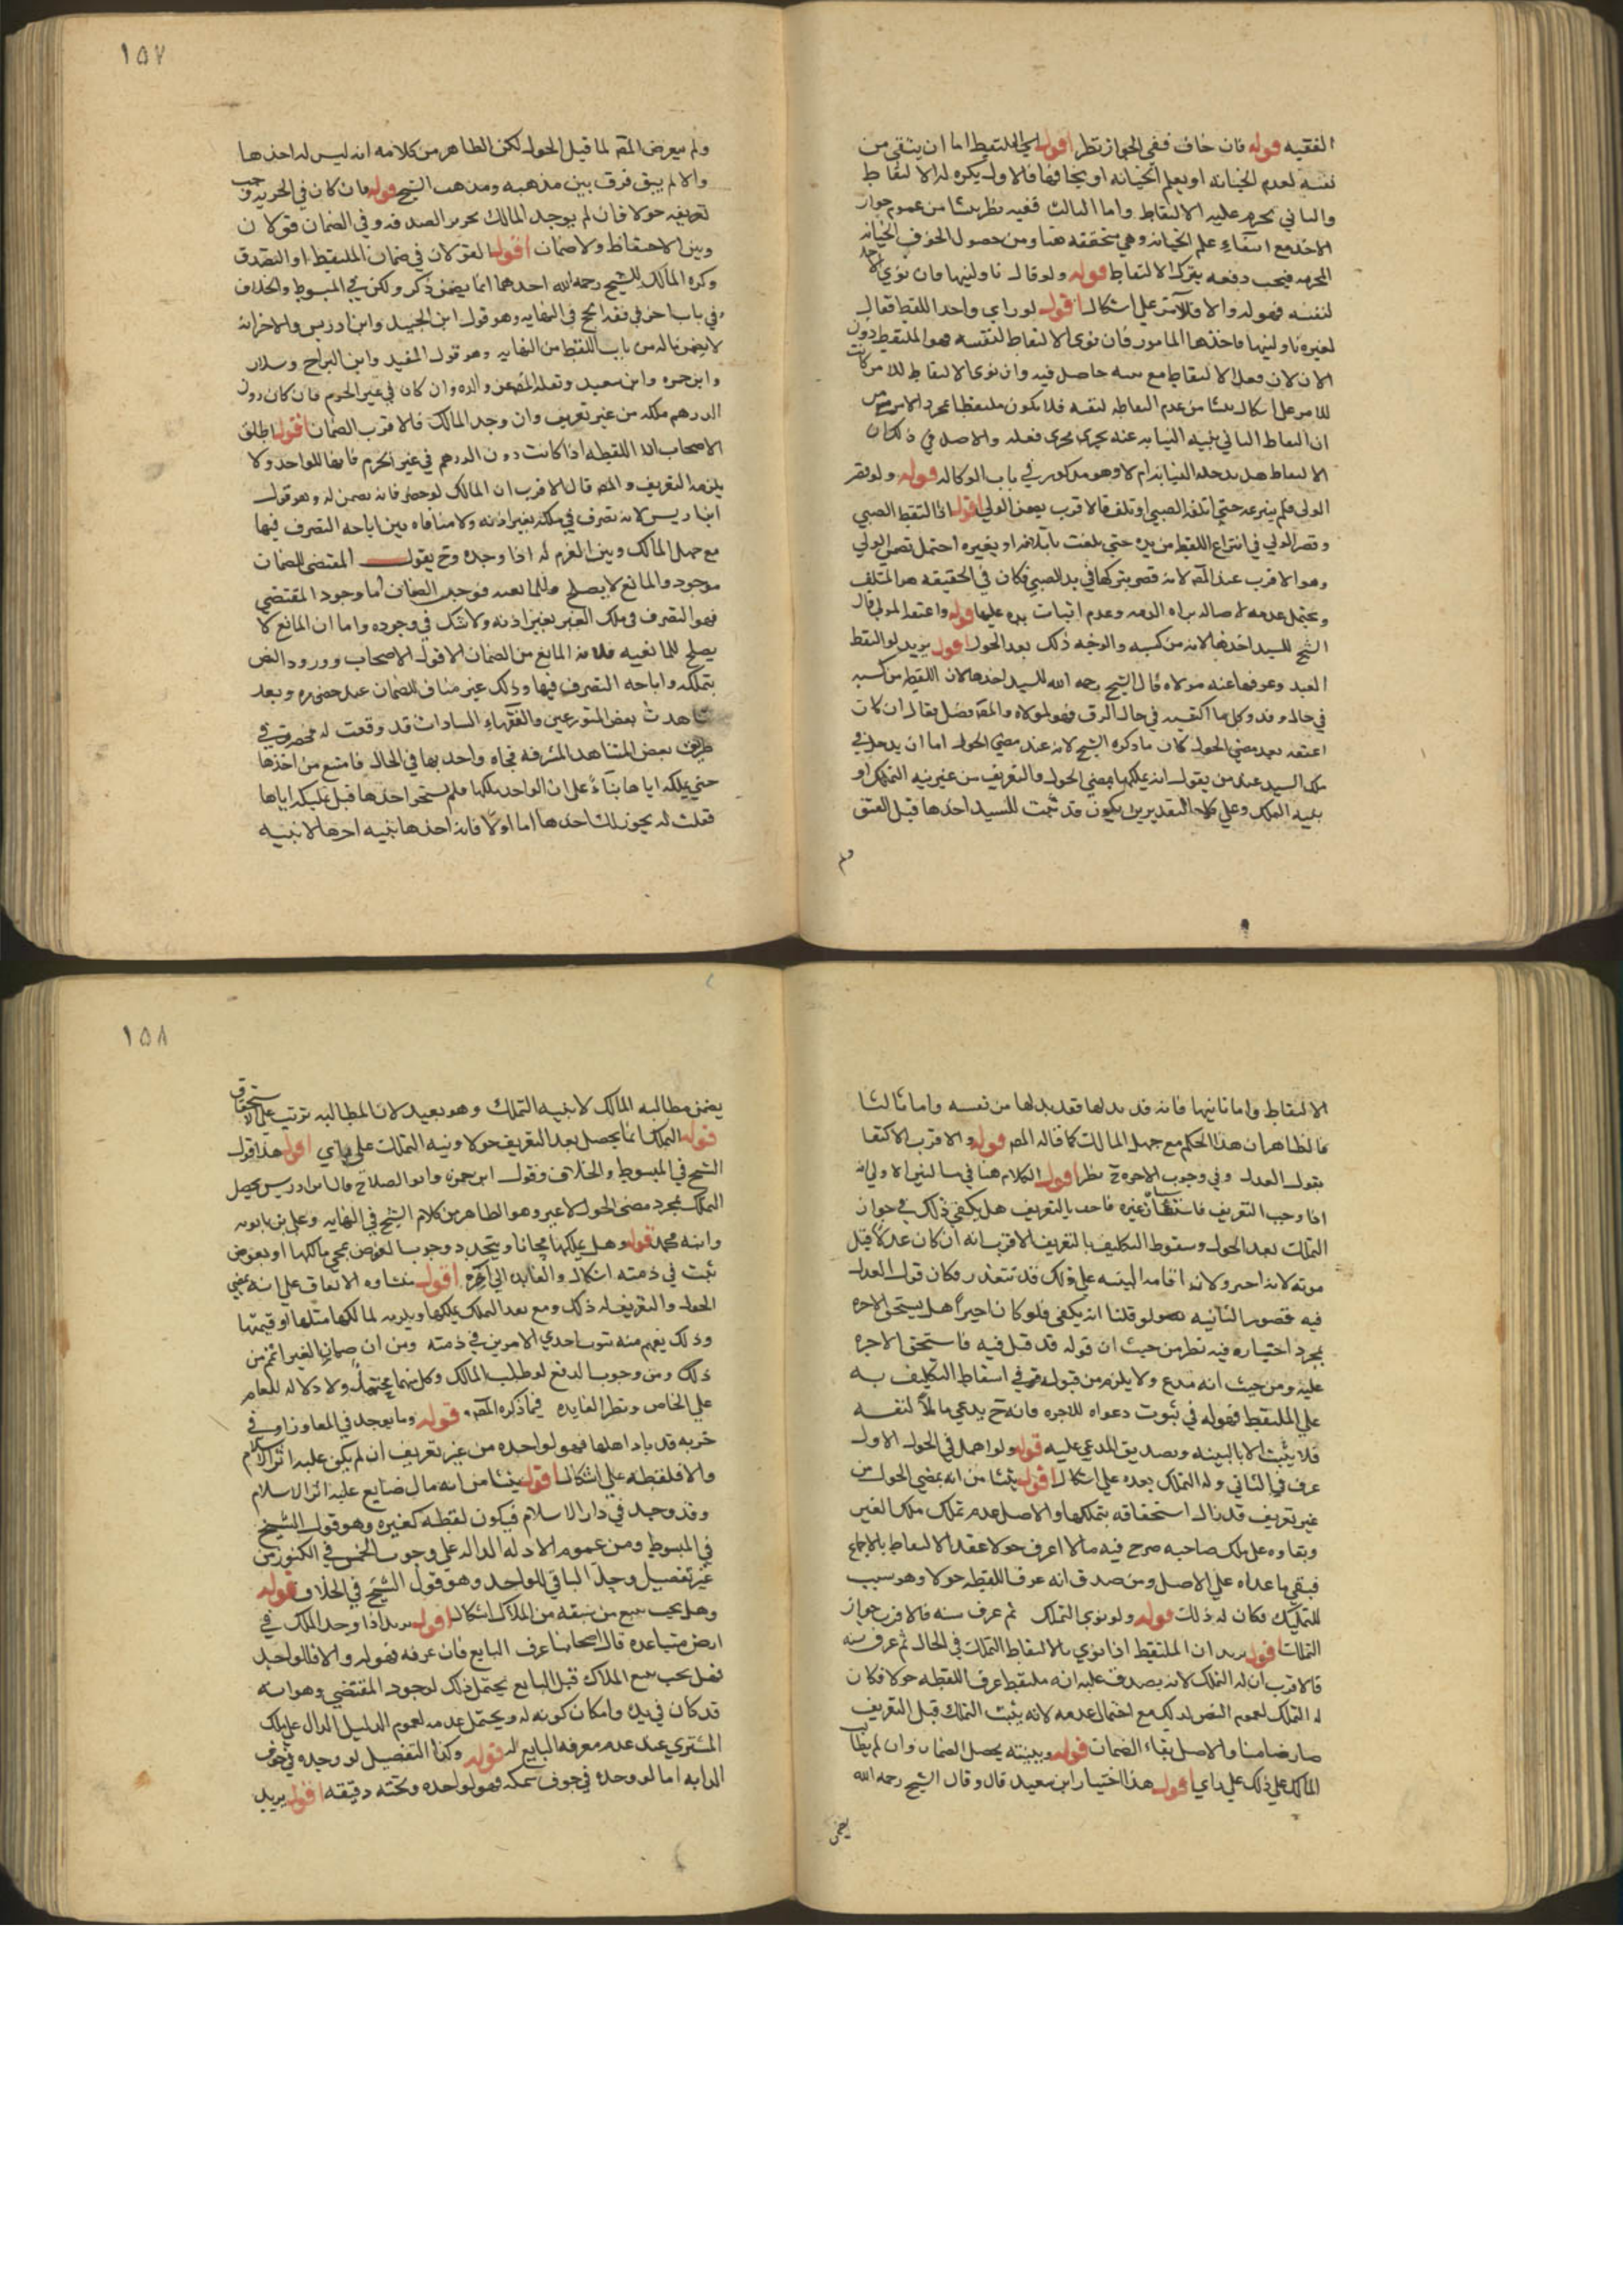 الفقيه قوله فان خاف ففي الجواز نظر اقول الملتقط اما ان يثق من
نفسه لعدم الخيانة او يعلم الخيانه او يخافها فالاول يكره له الالتقاط
والثاني يحرم عليه الالتقاط واما الثالث ففيه نظر ينشا من عموم جواز
الاخذ مع انتفاء علم الخيانه وهي متحققة هنا ومن حصول الخوف الخيانه
المحرمه فيجب دفعه بترك الالتقاط قوله ولو قال ناولنيها فان نوى الاخذ
لنفسه فهو له والا فللآمر على اشكال اقول لو راي واحد اللقطه فقال
لغيره ناولنيها فاخذها المامور فان نوى الالتقاط لنفسه فهو الملتقط دون
الامر لان فعل الالتقاط مع نيته حاصل فيه وان نوى الالتقاط للامر كانت
للامر على اشكال ينشا من عدم التقاطه لنفسه فلا يكون ملتقطا بمجرد الامر ومن
ان التقاط الثاني بنيه النيابه عنه يجري مجرى فعله والاصل في ذلك ان
الالتقاط هل يدخله النيابه ام لا وهو مذكور في باب الوكاله قوله ولو قصر
الولي فلم ينزعه حتى اتلفه الصبي او تلف فالاقرب يضمن الولي اقول اذا التقط الصبي
وقصر الولي في انتزاع اللقطه من يده حتى تلفت باتلافه او بغيره احتمل تضمين الولي
وهو الاقرب عند المص لانه قصر بتركها في يد الصبي فكان في الحقيقه هو المتلف
ويحتمل عدمه لاصاله براه الذمه وعدم اثبات يده عليها قوله واعتقه المولى قال
الشيخ للسيد اخذها لانه من كسبه والوجه ذلك بعد الحول اقول يريد لو التقط
العبد وعرفها عنه مولاه قال الشيخ رحمه الله للسيد اخذها لان اللقطه من كسبه
في حال رقه وكل ما اكتسبه في حال الرق فهو لمولاه والمص فصل فقال ان كان
اعتقه بعد مضي الحول كان ما ذكره الشيخ لانه عند مضي الحول اما ان يدخل في
ملك السيد عند من يقول انه يملكها بمضي الحول والتعريف من غير نيه التملك او
بنيه التملك وعلى كلا التقديرين يكون قد ثبت للسيد اخذها قبل العتق
ولم
١٥٧
ولم يتعرض المص لما قبل الحول لكن الظاهر من كلامه انه ليس له اخذها
والا لم يبق فرق بين مذهبه ومذهب الشيخ قوله فان كان في الحرم وجب
تعريفه حولا فان لم يوجد المالك تخير بين الصدقه وفي الضمان قولان
وبين الاحتفاظ ولا ضمان اقول القولان في ضمان الملتقط لو التصدق
وكره المالك للشيخ رحمه الله احدهما انما يضمن ذكر ولكن في المبسوط والخلاف
وفي باب اخر في فقد الحج في النهايه وهو قول ابن الجنيد وابن ادريس والاخر انه
لا يضمن قاله من باب اللقطه من النهايه وهو قول المفيد وابن البراج وسلار
وابن حمزه وابن سعيد ونقله المص عن والده وان كان في غير الحرم فان كان دون
الدرهم ملكه من غير تعريف وان وجد المالك فالاقرب الضمان اقول اطلق
الاصحاب ان اللقطه اذا كانت دون الدرهم في غير الحرم فانها للواحد ولا
يلزمه التعريف والمص قال الاقرب ان المالك لو حضر فانه يضمن له وهو قول
ابن ادريس لانه تصرف في ملكه بغير اذنه ولا منافاه بين اباحه التصرف فيها
مع جهل المالك وبين الغرم له اذا وجده وح يقول المقتضي للضمان
موجود والمانع لا يصلح للمانعيه فوجب الضمان اما وجود المقتضي
فهو التصرف في ملك الغير بغير اذنه ولا شك في وجوده واما ان المانع لا
يصلح للمانعيه فلانه المانع من الضمان الا قول الاصحاب وورود النص
بتملكه واباحه التصرف فيها وذلك غير مناف للضمان عند حضوره وبعد
شاهدت بعض المتورعين والفقهاء السادات قد وقعت له
طريق بعض المشاهد المشرفه فجاه واحد بها في الحال فامتنع من اخذها
حتى يملكه اياها بناءً على ان الواحد يملكها فلم يستحق اخذها قبل تمليكه اياها
فقلت له يجوز لك اخذها اما اولا فانه اخذها بنيه اخرها لا بنيه
الالتقاط واما ثانيا فانه قد بذلها فقد بذلها من نفسه واما ثالثا
فالظاهر ان هذا الحكم مع جهل المالك كما قاله المص قوله والاقرب الاكتفا
بقول العدل وفي وجوب الاجره ح نظر اقول الكلام هنا في مسالتين الاولى انه
اذا وجب التعريف فاستناب غيره فاخبر بالتعريف هل يكفي ذلك في جواز
التملك بعد الحول وسقوط التكليف بالتعريف الاقرب انه ان كان عدلا قبل
موته لانه اخبر ولانه اقامه البينه على ذلك قد تتعذر فكان قول العدل
فيه مقبولا الثانيه هو لو قلنا انه يكفي فلو كان اجيرا هل يستحق الاجره
بمجرد اخباره فيه نظر من حيث ان قوله قد قبل فيه فاستحق الاجره
عليه ومن حيث انه مدع ولا يلزم من قبول قوله في اسقاط التكليف به
على الملتقط قبوله في ثبوت دعواه للاجره فانه ح يدعي مالا لنفسه
فلا يثبت الا بالبينه وبصديق المدعى عليه قوله ولو اهمل في الحول الاول
عرف في الثاني وله التملك بعده على اشكال اقول ينشا من انه بمضي الحول من
غير تعريف قد زال استحقاقه بتملكها والاصل عدم تملك ملك الغير
وبقاوه على ملك صاحبه صرح فيه مالا اعرف حولا عقد الالتقاط بالاجماع
فبقي ما عداه على الاصل ومن صدق انه عرف اللقطه حولا وهو سبب
للتمليك فكان له ذلك قوله ولو نوى التملك ثم عرف سنه فالاقرب جواز
التملك اقول يريد ان الملتقط اذا نوى بالالتقاط التملك في الحال ثم عرف سنه
فالاقرب ان له التملك لانه يصدق عليه انه ملتقط عرف اللقطه حولا فكان
له التملك لعموم النص لذلك مع احتمال عدمه لانه بنيته التملك قبل التعريف
صار ضامنا والاصل بقاء الضمان قوله وبنيته يحصل الضمان وان لم يطالب
المالك على ذلك على راي اقول هذا اختيار ابن سعيد قال وقال الشيخ رحمه الله
يضمن
١٥٨
يضمن مطالبه المالك لا بنيه التملك وهو بعيد لان المطالبه تترتب على الاستحقاق
قوله التملك انما يحصل بعد التعريف حولا ونيه التملك على راي اقول هذا قول
الشيخ في المبسوط والخلاف وقول ابن حمزه وابو الصلاح وقال ابن ادريس يحصل
التملك بمجرد مضي الحول لا غير وهو الظاهر من كلام الشيخ في النهايه وعلي بن بابويه
وابنه محمد قوله وهل يملكها مجانا ويتجدد وجوب العوض بمجي مالكها او بعوض
ثبت في ذمته اشكال والفايده الى اخره اقول منشاوه الاتفاق على انه بمضي
الحول والتعريف له ذلك ومع بعد التملك يملكها ويلزمه لمالكها مثلها او قيمتها
وذلك يفهم منه ثبوت احدى الامرين في ذمته ومن ان ضمان الغير انما من
ذلك ومن وجوب الدفع لو طلب المالك وكل منهما محتمل ولا دلاله للعام
على الخاص ونظر الفايده فيما ذكره المص قوله وما يوجد في المفاوز او في
خربه قد باد اهلها فهو لواحده من غير تعريف ان لم يكن عليه اثر الاسلام
والا فلقطه على اشكال اقول ينشا من انه مال ضايع عليه اثر الاسلام
وقد وجد في دار الاسلام فيكون لقطه كغيره وهو قول الشيخ
في المبسوط ومن عموم الادله الداله على وجوب الخمس في الكنوز من
غير تفصيل وحل الباقي للواحد وهو قول الشيخ في الخلاف قوله
وهل يجب تتبع من سبقه من الملاك اشكال اقول يريد اذا وجد المالك في
ارض مبتاعه قال اصحابنا عرف البايع فان عرفه فهو له والا فللواحد
فهل يجب تتبع الملاك قبل البايع يحتمل ذلك لوجود المقتضي وهو انه
قد كان في يده وامكان كونه له ويحتمل عدمه لعموم الدليل الدال على ملك
المشتري عند عدم معرفه البايع له قوله وكذا التفصيل لو وجده في جوف
الدابه اما لو وجده في جوف سمكه فهو لواحده وتحته دقيقه اقول يريد